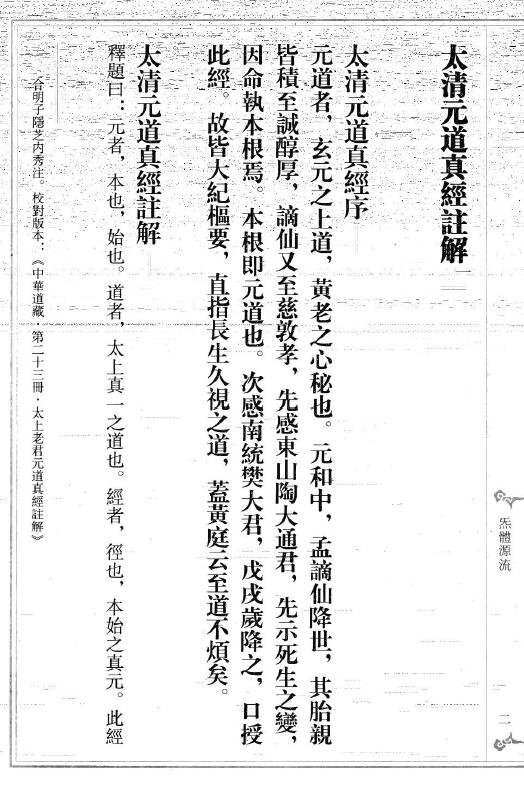 太清元道真經註解〔一〕
太清元道真經序
元道者，玄元之上道，黃老之心秘也。元和中，孟謫仙降世，其胎親
皆積至誠醇厚，謫仙又至慈敦孝，先感東山陶大通君，先示死生之變，
因命執本根焉。本根即元道也。次感南統樊大君，戊戌歲降之，口授
此經。故皆大紀樞要，直指長生久視之道，蓋黃庭云至道不煩矣。
太清元道真經註解
釋題曰：元者，本也，始也。道者，太上真一之道也。經者，徑也，本始之真元。此經
合明子隱芝內秀注。校對版本：《中華道藏·第二十三冊·太上老君元道真經註解》
炁體源流
二